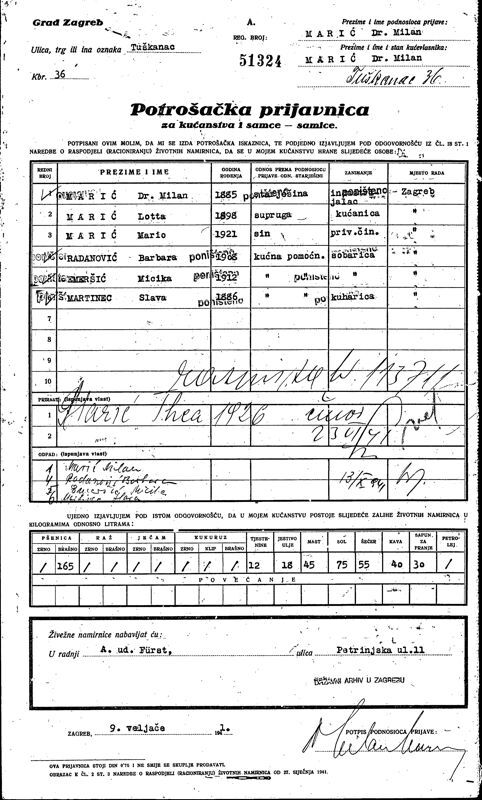 Grad Zagreb
A.
Prezime i ime podnosioca prijave:
REG. BROJ:
MARIĆ Dr. Milan
Ulica, trg ili ina oznaka Tuškanac
51324
Prezime i ime i stan kućevlasnika:
MARIĆ Dr. Milan
Kbr. 36
Tuškanac 36.
Potrošačka prijavnica
za kućanstva i samce — samice.
POTPISANI OVIM MOLIM, DA MI SE IZDA POTROŠAČKA ISKAZNICA, TE PODJEDNO IZJAVLJUJEM POD ODGOVORNOŠĆU IZ ČL. 18 ST. 1
NAREDBE O RASPODJELI (RACIONIRANJU) ŽIVOTNIH NAMIRNICA, DA SE U MOJEM KUĆANSTVU HRANE SLIJEDEĆE OSOBE:
REDNI BROJ PREZIME I IME GODINA ROĐENJA ODNOS PREMA PODNOSIOCU PRIJAVE ODN. STARJEŠINI ZANIMANJE MJESTO RADA
1 MARIĆ Dr. Milan 1885 poništeno Zagreb
2 MARIĆ Lotta 1898 supruga kućanica "
3 MARIĆ Mario 1921 sin priv.čin. "
RADANOVIĆ Barbara poništeno kućna pomoćn. sobarica "
ŽMERŠIĆ Micika poništeno 1912 " " poništeno "
MARTINEC Slava poništeno 1886 " " po kuharica "
7
8
9
10
113711
PRIMITAK: (ispunjava vlast)
1 Marić Thea 1926
2
ODPAD: (ispunjava vlast)
1 Marić Milan
4 Radanović Barbara
UJEDNO IZJAVLJUJEM POD ISTOM ODGOVORNOŠĆU, DA U MOJEM KUĆANSTVU POSTOJE SLIJEDEĆE ZALIHE ŽIVOTNIH NAMIRNICA U
KILOGRAMIMA ODNOSNO LITRAMA:
PŠENICA RAŽ JEČAM KUKURUZ TJESTENINE JESTIVO ULJE MAST SOL ŠEĆER KAVA SAPUN ZA PRANJE PETROLEJ
ZRNO BRAŠNO ZRNO BRAŠNO ZRNO BRAŠNO ZRNO KLIP BRAŠNO
/ 165 / / / / / / / 12 18 45 75 55 40 30 /
POVEĆANJE
Živežne namirnice nabavljat ću:
U radnji A. ud. Fürst, ulica Petrinjska ul.11
DRŽAVNI ARHIV U ZAGREBU
ZAGREB, 9. veljače 1941.
POTPIS PODNOSIOCA PRIJAVE:
OVA PRIJAVNICA STOJI DIN 0'75 I NE SMIJE SE SKUPLJE PRODAVATI.
OBRAZAC K ČL. 2 ST. 3 NAREDBE O RASPODJELI (RACIONIRANJU) ŽIVOTNIH NAMIRNICA OD 27. SIJEČNJA 1941.